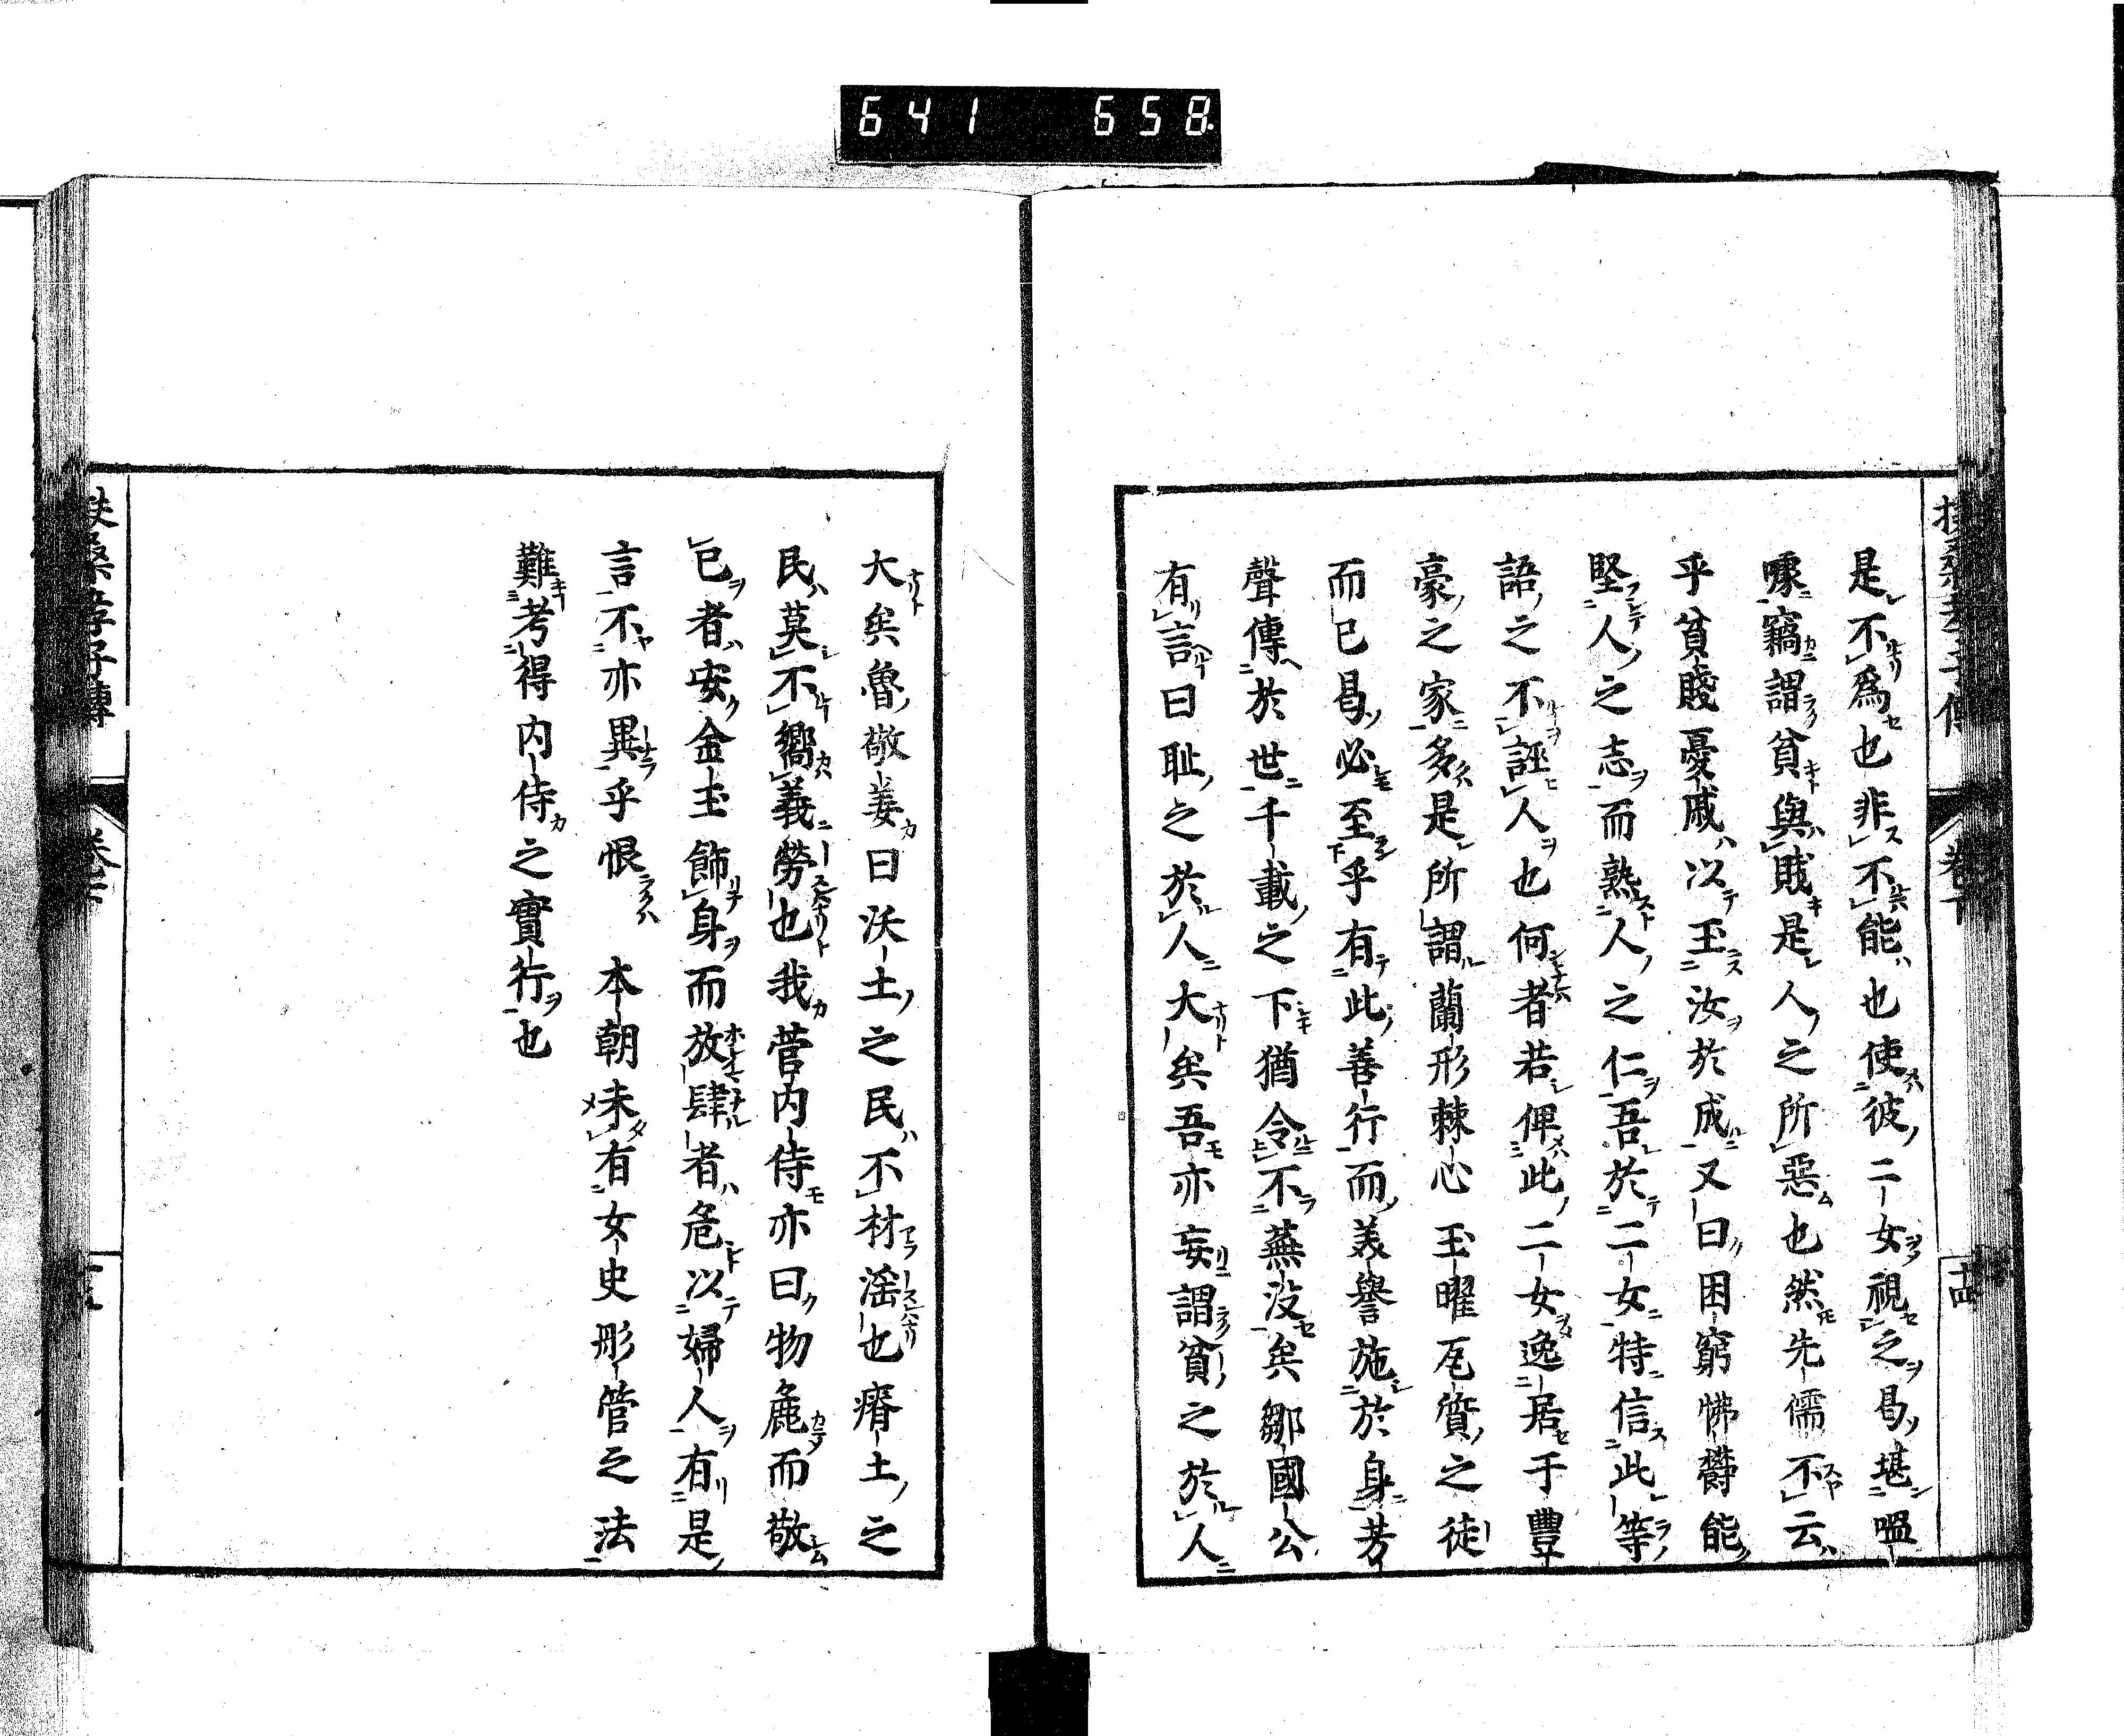 641 658
扶桑孝子傳 卷下 十四
是不爲也非不能也使彼二女視之曷堪嗢
噱竊謂貧與賎是人之所惡也然先儒不云
乎貧賤憂戚以玉汝於成又曰困窮怫欝能
堅人之志而熟人之仁吾於二女特信此等
語之不誣人也何者若俾此二女逸居于豐
豪之家多是所謂蘭形棘心玉曜瓦質之徒
而已曷必至乎有此善行而羙譽施於身芳
聲傳於世千載之下猶令不蕪没矣鄒國公
有言曰耻之於人大矣吾亦妄謂貧之於人
大矣魯敬姜曰沃土之民不材滛也瘠土之
民莫不嚮義勞也我菅内侍亦曰物麁而敬
已者安金玉飾身而放肆者危以婦人有是
言不亦異乎恨 本朝未有女史彤管之法
難考得内侍之實行也
扶桑孝子傳